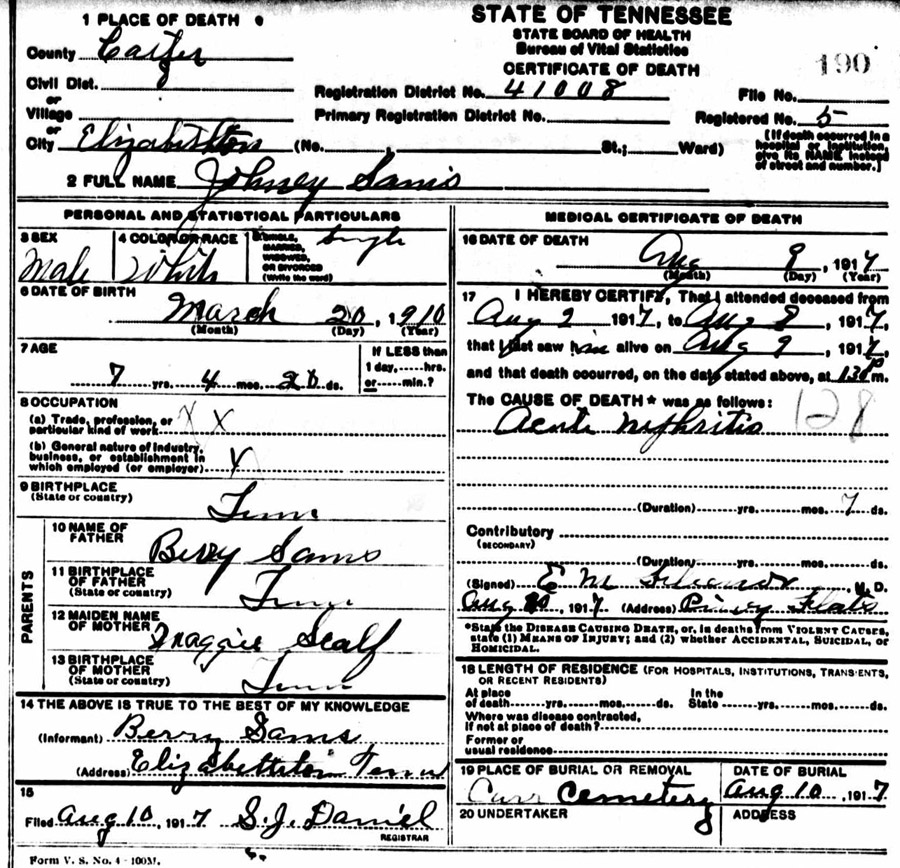 STATE OF TENNESSEE
STATE BOARD OF HEALTH
Bureau of Vital Statistics
CERTIFICATE OF DEATH
190
1 PLACE OF DEATH
County Carter
Civil Dist.
or
Village
or
City Elizabethton (No. , St.; Ward)
Registration District No. 41008 File No.
Primary Registration District No. Registered No. 5
[If death occurred in a
hospital or institution,
give its NAME instead
of street and number.]
2 FULL NAME Johney Sams
PERSONAL AND STATISTICAL PARTICULARS
3 SEX
Male
4 COLOR OR RACE
White
5 SINGLE,
MARRIED,
WIDOWED,
OR DIVORCED
(Write the word)
Single
6 DATE OF BIRTH
March 20, 1910
(Month) (Day) (Year)
7 AGE
7 yrs. 4 mos. 20 ds.
If LESS than
1 day,----hrs.
or----min.?
8 OCCUPATION
(a) Trade, profession, or
particular kind of work X X
(b) General nature of industry,
business, or establishment in
which employed (or employer) X
9 BIRTHPLACE
(State or country)
Tenn
PARENTS
10 NAME OF
FATHER
Berry Sams
11 BIRTHPLACE
OF FATHER
(State or country)
Tenn
12 MAIDEN NAME
OF MOTHER
Maggie Scalf
13 BIRTHPLACE
OF MOTHER
(State or country)
Tenn
14 THE ABOVE IS TRUE TO THE BEST OF MY KNOWLEDGE
(Informant) Berry Sams
(Address) Elizabethton Tenn
15
Filed Aug 10, 1917 S. J. Daniel
REGISTRAR
Form V. S. No. 4 - 100M.
MEDICAL CERTIFICATE OF DEATH
16 DATE OF DEATH
Aug 9, 1917
(Month) (Day) (Year)
17 I HEREBY CERTIFY, That I attended deceased from
Aug 2 1917, to Aug 8, 1917,
that I last saw him alive on Aug 9, 1917,
and that death occurred, on the date stated above, at 130 P m.
The CAUSE OF DEATH* was as follows:
128
Acute Nephritis
(Duration) yrs. mos. 7 ds.
Contributory
(SECONDARY)
(Duration) yrs. mos. ds.
(Signed) E M , M. D.
Aug 10, 1917 (Address) Piney Flats
*State the DISEASE CAUSING DEATH, or, in deaths from VIOLENT CAUSES,
state (1) MEANS OF INJURY; and (2) whether ACCIDENTAL, SUICIDAL, or
HOMICIDAL.
18 LENGTH OF RESIDENCE (FOR HOSPITALS, INSTITUTIONS, TRANSIENTS,
OR RECENT RESIDENTS)
At place
of death yrs. mos. ds.
In the
State yrs. mos. ds.
Where was disease contracted,
if not at place of death?
Former or
usual residence
19 PLACE OF BURIAL OR REMOVAL
Carr Cemetery
DATE OF BURIAL
Aug 10, 1917
20 UNDERTAKER
ADDRESS